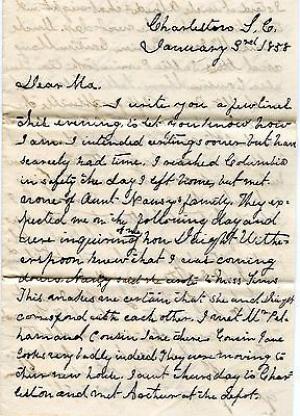 Charleston S. C.
January 3rd 1858
Dear Ma.
I write you a few lines
this evening to let you know how
I am. I intended writing sooner but have
scarcely had time. I reached Columbia
in safety the day I left home, but met
none of Aunt Nancy's family. They ex-
pected me on the following day and
were inquiring of me how Dwight Withe-
erspoon knew that I was coming
down
This makes me certain that she and Dwight
correspond with each other. I met Mr Pel-
ham and Cousin Jane there. Cousin Jane
looks very badly indeed. They were moving to
their new house. I came Thursday to Char-
leston and met Arthur at the depot.